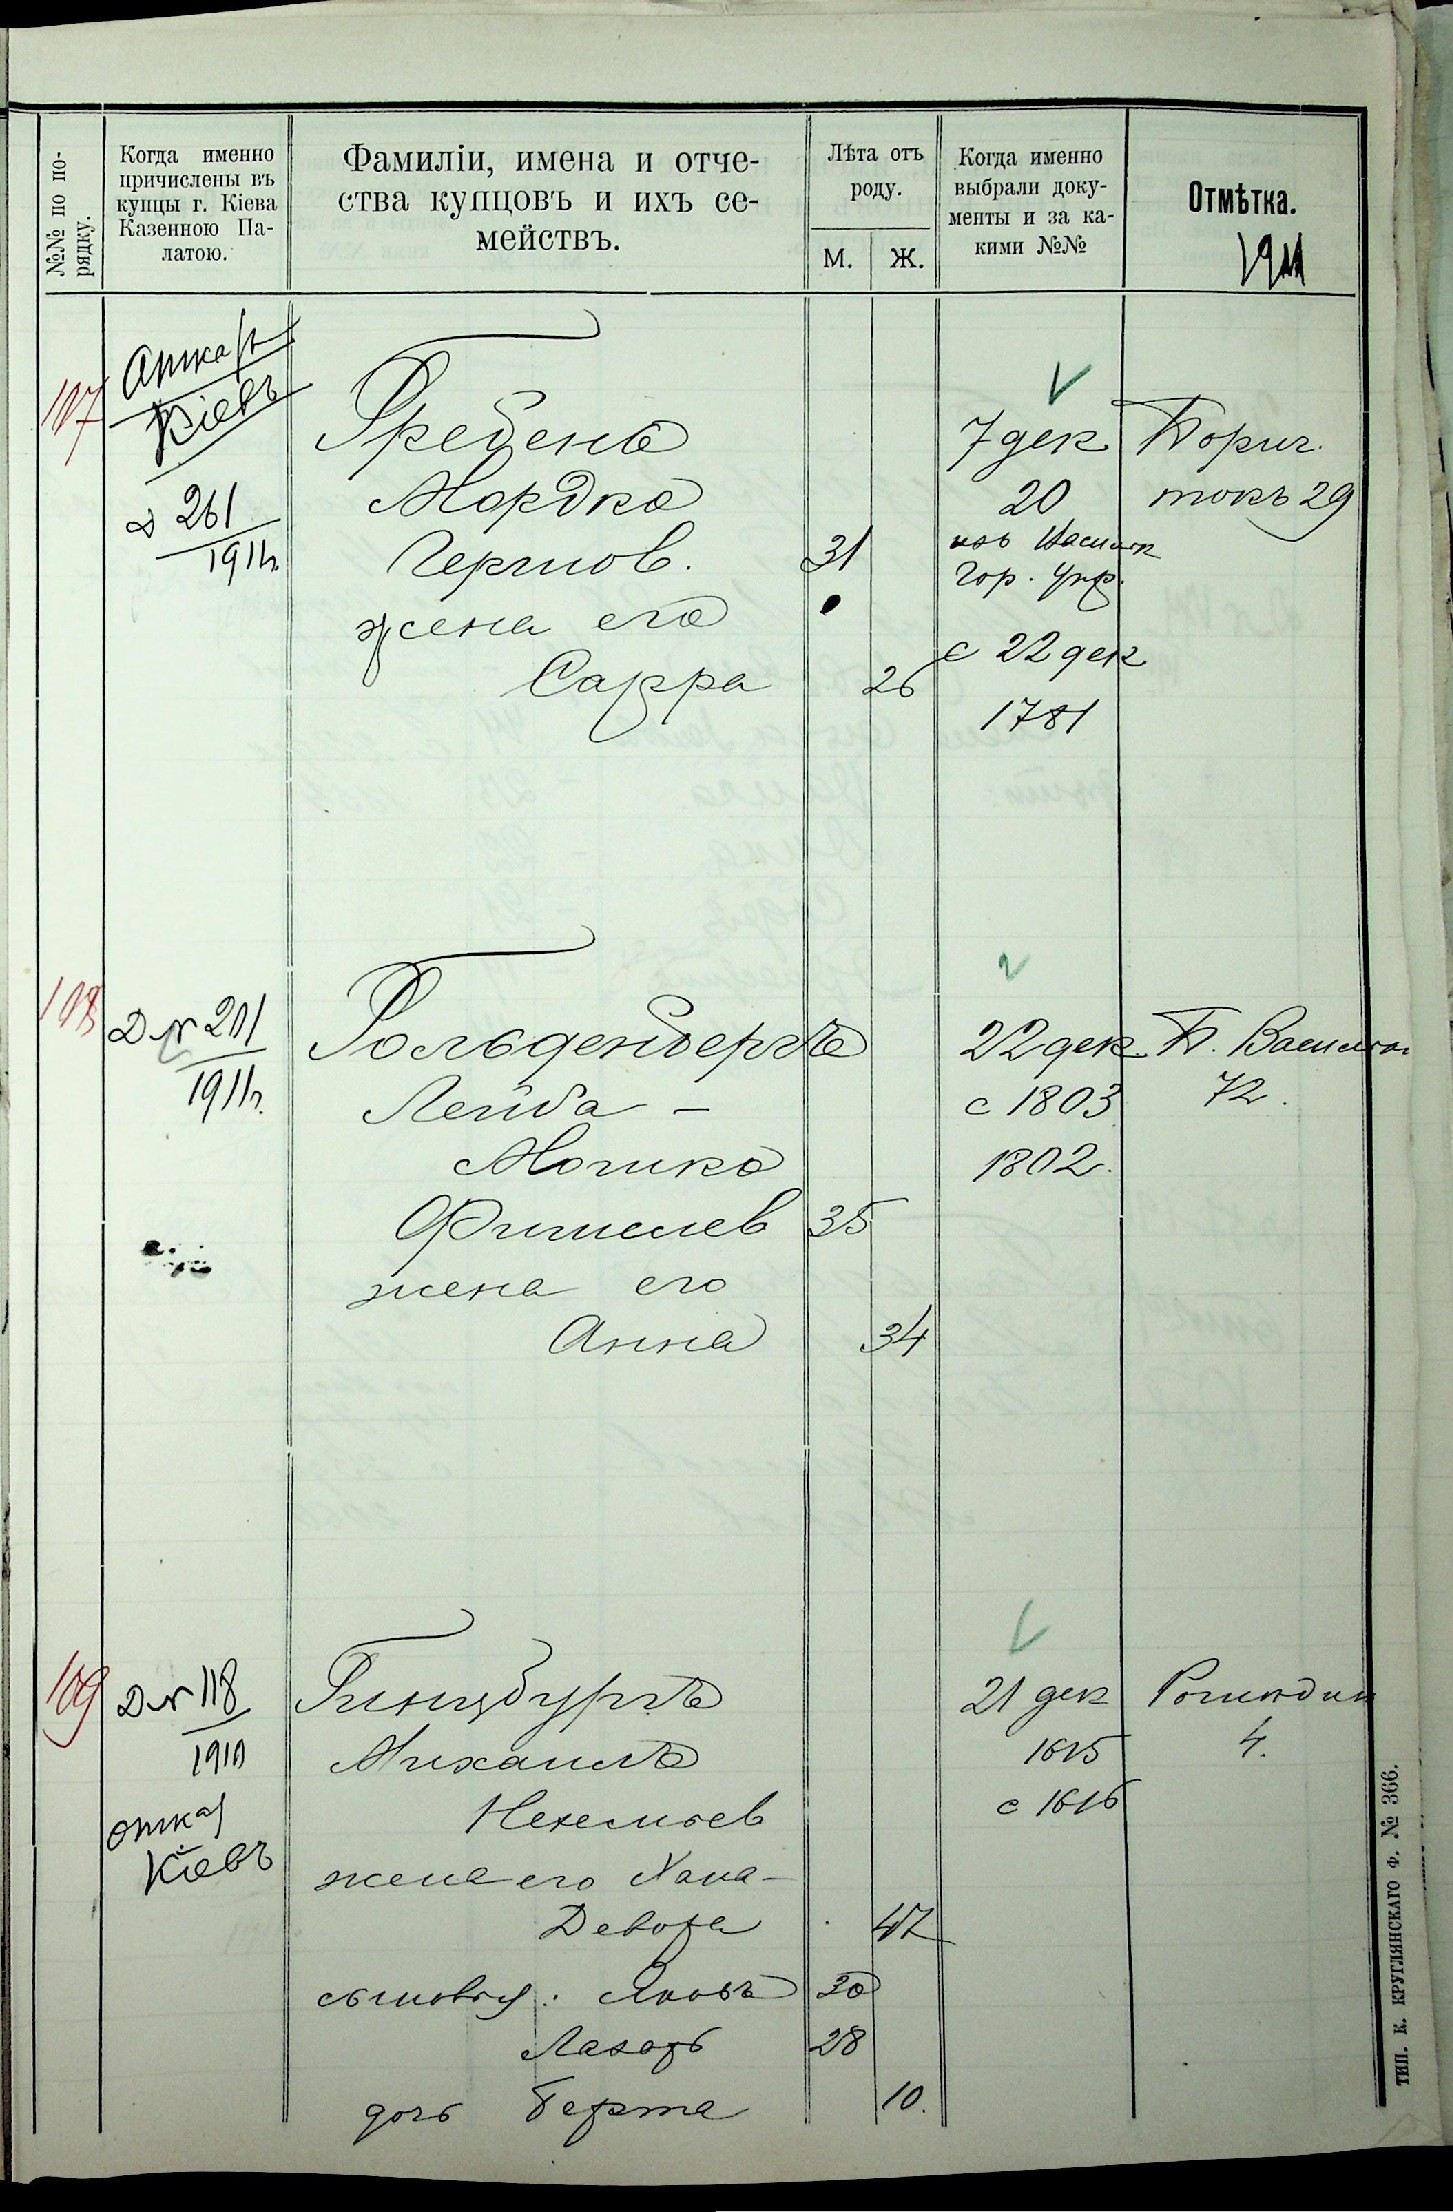 №№ по по-
рядку.
Когда именно
причислены въ
купцы г. Кіева
Казенною Па-
латою.
Фамиліи, имена и отче-
ства купцовъ и ихъ се-
мействъ.
Лѣта отъ
роду.
М. Ж.
Когда именно
выбрали доку-
менты и за ка-
кими №№
Отмѣтка.
1911
107
Кіевъ
261
1911г.
Гребень
Мордко
Гершов. 31
жена его
Сарра 26
7 дек
20
Гор. Упр.
с 22 дек
1781
29
108
Д № 201
1911г.
Гольденбергъ
Лейба -
Мошко
Фишелев 35
жена его
Анна 34
22 дек
с 1803
1802.
Б. Васильк.
72.
109
Д № 118
1910
Кіевъ
Гинцбургъ
Михаилъ
Нехемьев
жена его Хана-
Девора 47
сыновья: Яковъ 30
Лазарь 28
дочь Берта 10.
21 дек
1615
с 1616
4.
ТИП. К. КРУГЛЯНСКАГО Ф. № 366.